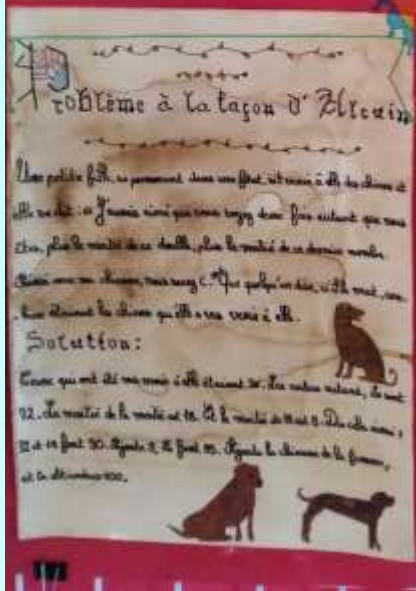 Problème à la façon d'Alcuin
Une petite fille, se promenant dans une forêt, vit venir à elle des chiens et
elle se dit : « J'aurais aimé que vous soyez deux fois autant que vous
êtes, plus la moitié de ce double, plus la moitié de ce dernier nombre.
Ainsi avec ma chienne, vous serez C. » Que quelqu'un dise, s'il le veut, com-
bien étaient les chiens qu'elle a vus venir à elle.
Solution :
Ceux qui ont été vus venir à elle étaient 36. Les autres autant, ils sont
72. La moitié de la moitié est 18. Et la moitié de 18 est 9. Dis cela ainsi :
72 et 18 font 90. Ajoute 9, ils font 99. Ajoute la chienne de la femme,
et tu obtiendras 100.